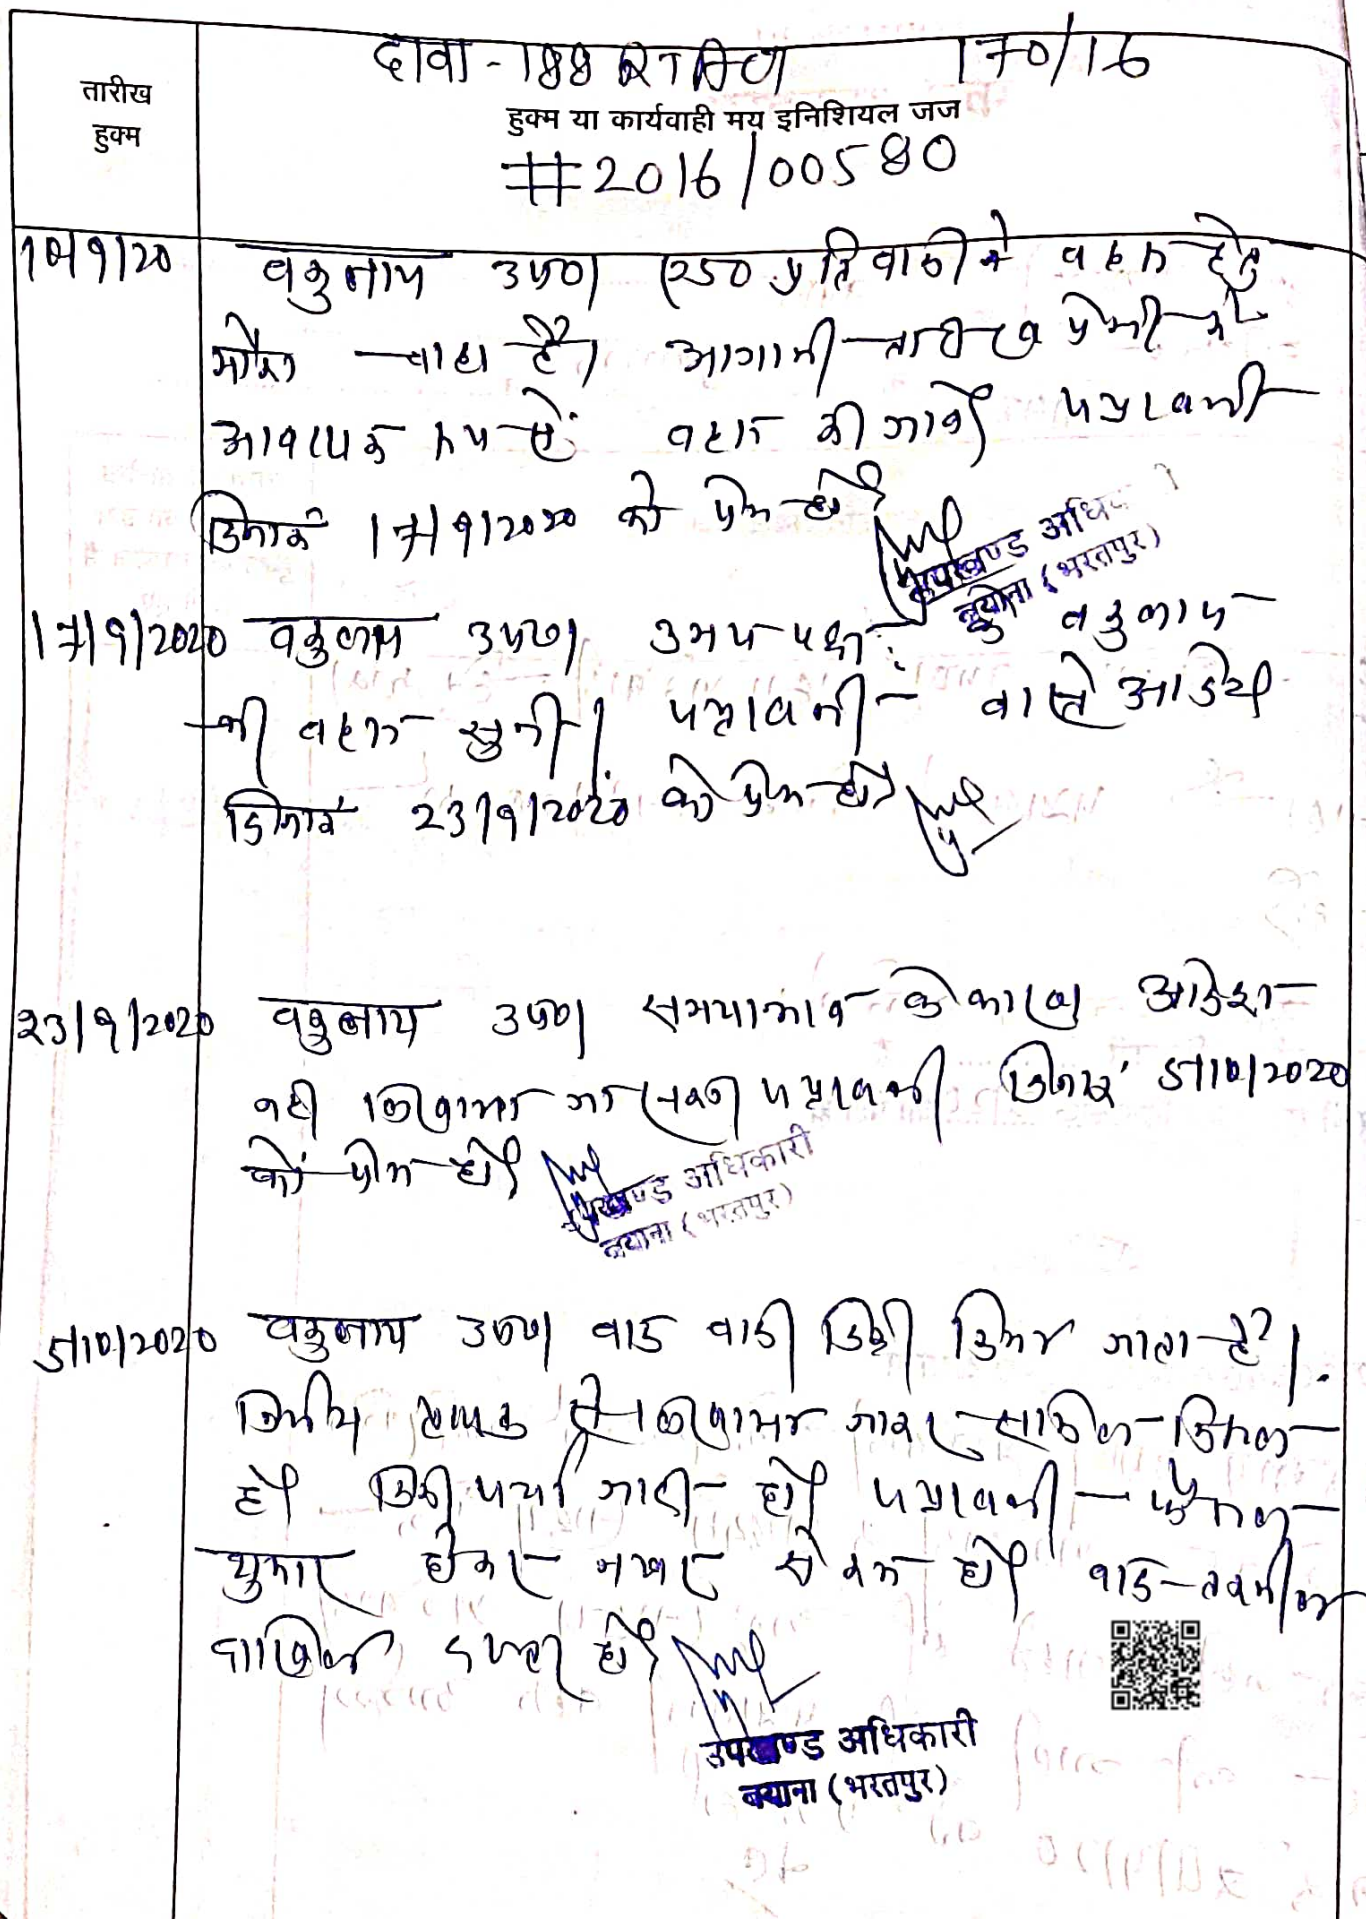 दावा - 188 RTA
170/16
तारीख
हुक्म
हुक्म या कार्यवाही मय इनिशियल जज
#2016/00580
10/9/20 वकुलाय उप० प्रतिवादी ने बहस हेतु
मौका चाहा है। आगामी तारीख पेशी को
आवश्यक रूप से बहस की जावे। पत्रावली
दिनांक 17/9/2020 को पेश हो।
उपखण्ड अधिक
बयाना (भरतपुर)
17/9/2020 वकुलाय उप० उभय पक्ष वकुलाय
की बहस सुनी। पत्रावली वास्ते आदेश
दिनांक 23/9/2020 को पेश हो।
23/9/2020 वकुलाय उप० समयाभाव के कारण आदेश
नही लिखाया जा सका पत्रावली दिनांक 5/10/2020
को पेश हो।
उपखण्ड अधिकारी
बयाना (भरतपुर)
5/10/2020 वकुलाय उप० वाद वादी डिक्री किया जाता है।
निर्णय पृथक से लिखाया जाकर शामिल मिसल
हो। डिक्री पर्चा जारी हो। पत्रावली फैसल
शुमार होकर नम्बर से कम हो। बाद तकमील
दाखिल दफ्तर हो।
उपखण्ड अधिकारी
बयाना (भरतपुर)